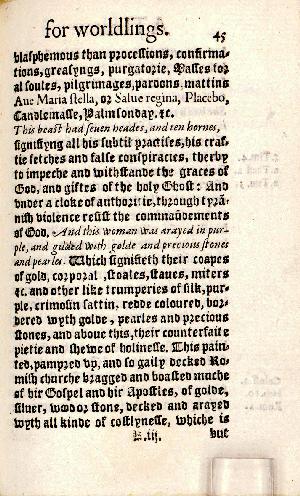 for worldlings. 45
blasphemous than processions, confirma-
tions, greasyngs, purgatorie, Masses for
al soules, pilgrimages, pardons, mattins
Aue Maria stella, or Salue regina, Placebo,
Candlemasse, Palmsonday. &c.
This beast had seuen heades, and ten hornes,
signifyng all his subtil practises, his craf-
tie fetches and false conspiracies, therby
to impeche and withstande the graces of
God, and giftes of the holy Ghost: And
vnder a cloke of authoritie, through tyrã-
nish violence resist the commaũdements
of God, And this woman was arayed in pur-
ple, and gilded with golde and precious stones
and pearles. Which signifieth their coapes
of gold, corporal, stoales, staues, miters
&c. and other like trumperies of silk, pur-
ple, crimosin sattin, redde coloured, bor-
dered wyth golde, pearles and precious
stones, and aboue this, their counterfaite
pietie and shewe of holinesse. This pain-
ted, pampred vp, and so gaily decked Ro-
mish churche bragged and boasted muche
of hir Gospel and hir Apostles, of golde,
siluer, wood or stone, decked and arayed
wyth all kinde of costlynesse, whiche is
K.iii. but